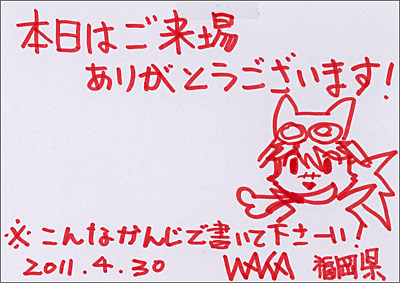 本日はご来場
ありがとうございます!
※こんなかんじで書いて下さーい!
2011.4.30 WAKA 福岡県